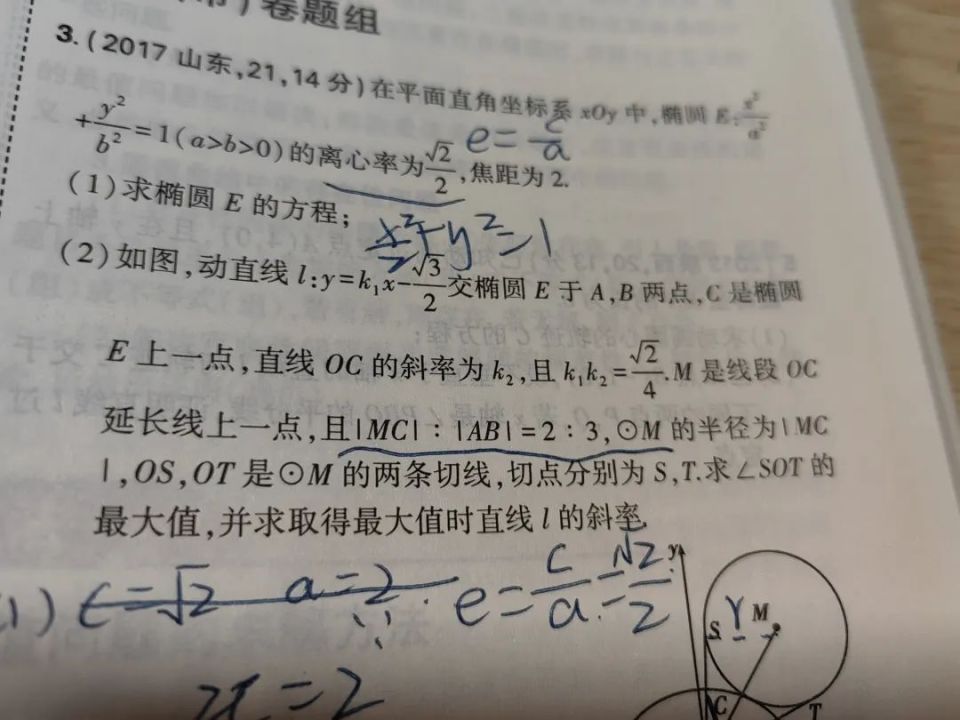 卷题组
3.(2017山东,21,14分)在平面直角坐标系xOy中,椭圆E:x²/a²
+y²/b²=1(a>b>0)的离心率为√2/2,焦距为2.
e=c/a
(1)求椭圆E的方程;
x²/2+y²=1
(2)如图,动直线l:y=k₁x-√3/2交椭圆E于A,B两点,C是椭圆
E上一点,直线OC的斜率为k₂,且k₁k₂=√2/4.M是线段OC
延长线上一点,且|MC|:|AB|=2:3,⊙M的半径为|MC
|,OS,OT是⊙M的两条切线,切点分别为S,T.求∠SOT的
最大值,并求取得最大值时直线l的斜率.
1) c=√2 a=2 e=c/a=√2/2
=2
y
S r M
C T